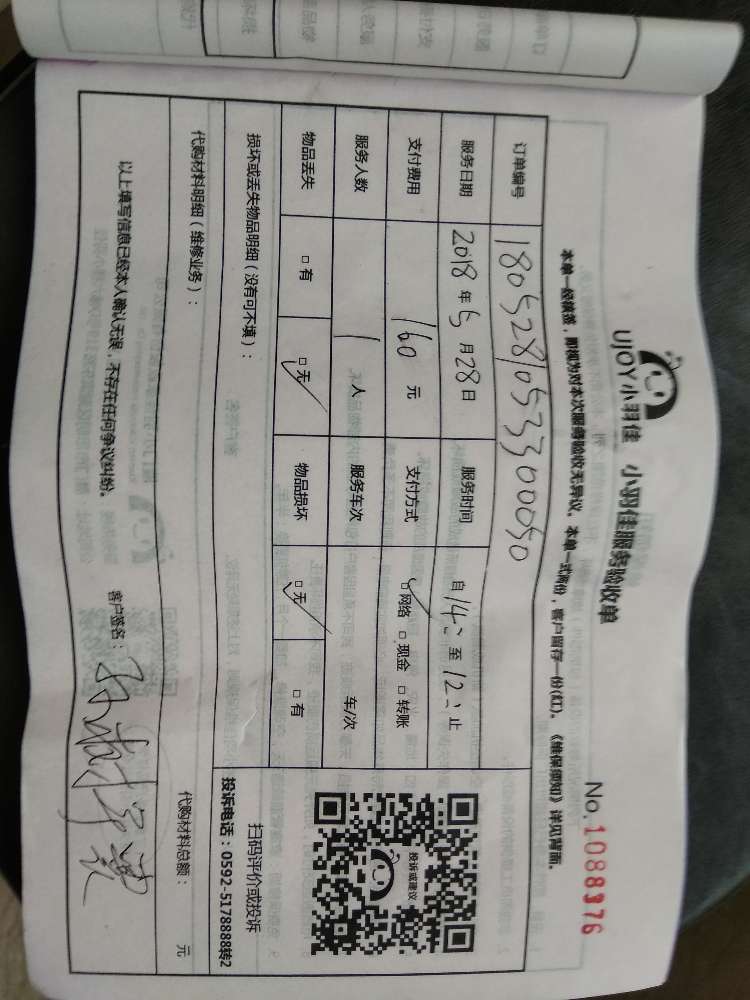 UJOY小羽佳 小羽佳服务验收单
No.1088376
本单一经填签，即视为对本次服务验收无异议。本单一式两份，客户留存一份(红)。《维保须知》详见背面。
订单编号 180528105330050
服务日期 2018年5月28日 服务时间 自14:至12:止
支付费用 160元 支付方式 □网络 □现金 □转账
服务人数 1人 服务车次 车/次
物品丢失 □有 □无 物品损坏 □无 □有
投诉或建议
扫码评价或投诉
投诉电话：0592-5178888转2
损坏或丢失物品明细（没有可不填）：
代购材料明细（维修业务）： 代购材料总额： 元
以上填写信息已经本人确认无误，不存在任何争议纠纷。 客户签名：